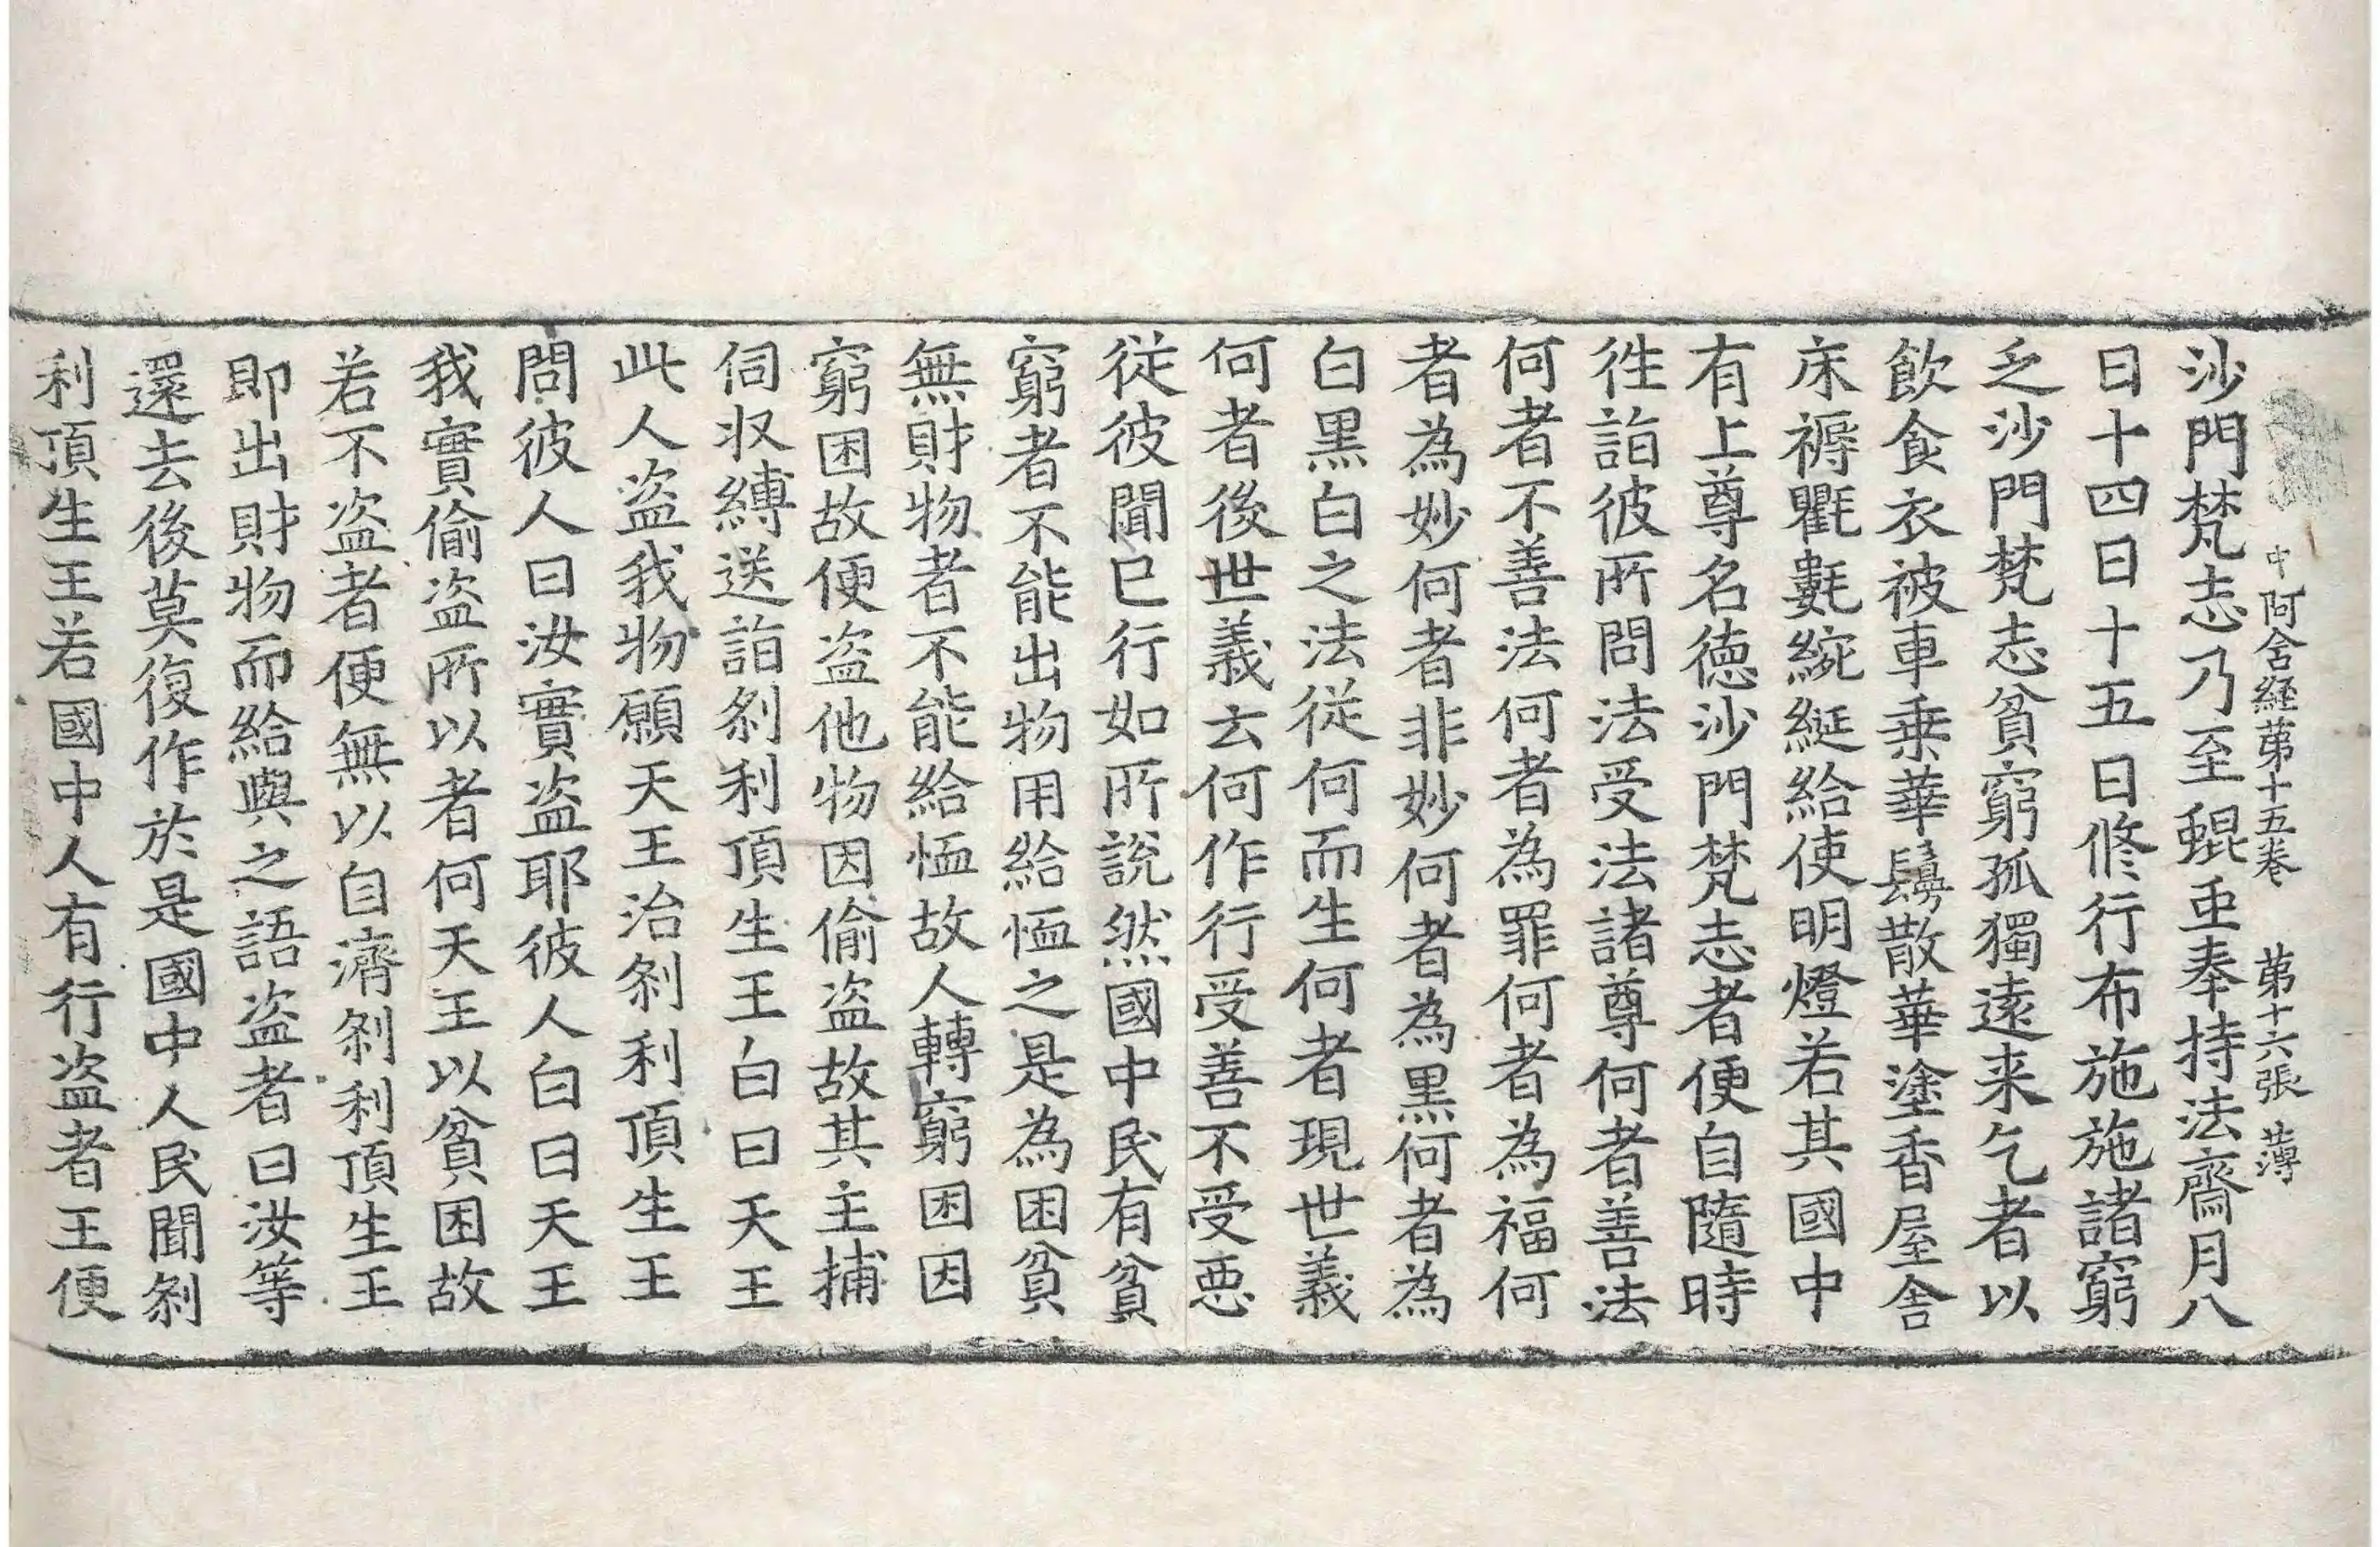 中阿含経苐十五卷　苐十六張　薄
沙門梵志乃至蜫䖝奉持法齋月八
日十四日十五日修行布施施諸窮
乏沙門梵志貧窮孤獨遠来乞者以
飲食衣被車乗華鬘散華塗香屋舍
床褥氍㲣綩綖給使明燈若其國中
有上尊名徳沙門梵志者便自隨時
徃詣彼所問法受法諸尊何者善法
何者不善法何者為罪何者為福何
者為妙何者非妙何者為黒何者為
白黒白之法従何而生何者現世義
何者後世義云何作行受善不受惡
従彼聞已行如所說然國中民有貧
窮者不能出物用給恤之是為困貧
無財物者不能給恤故人轉窮困因
窮困故便盗他物因偷盗故其主捕
伺収縛送詣刹利頂生王白曰天王
此人盗我物願天王治刹利頂生王
問彼人曰汝實盗耶彼人白曰天王
我實偷盗所以者何天王以貧困故
若不盗者便無以自濟刹利頂生王
即出財物而給與之語盗者曰汝等
還去後莫復作於是國中人民聞刹
利頂生王若國中人有行盗者王便